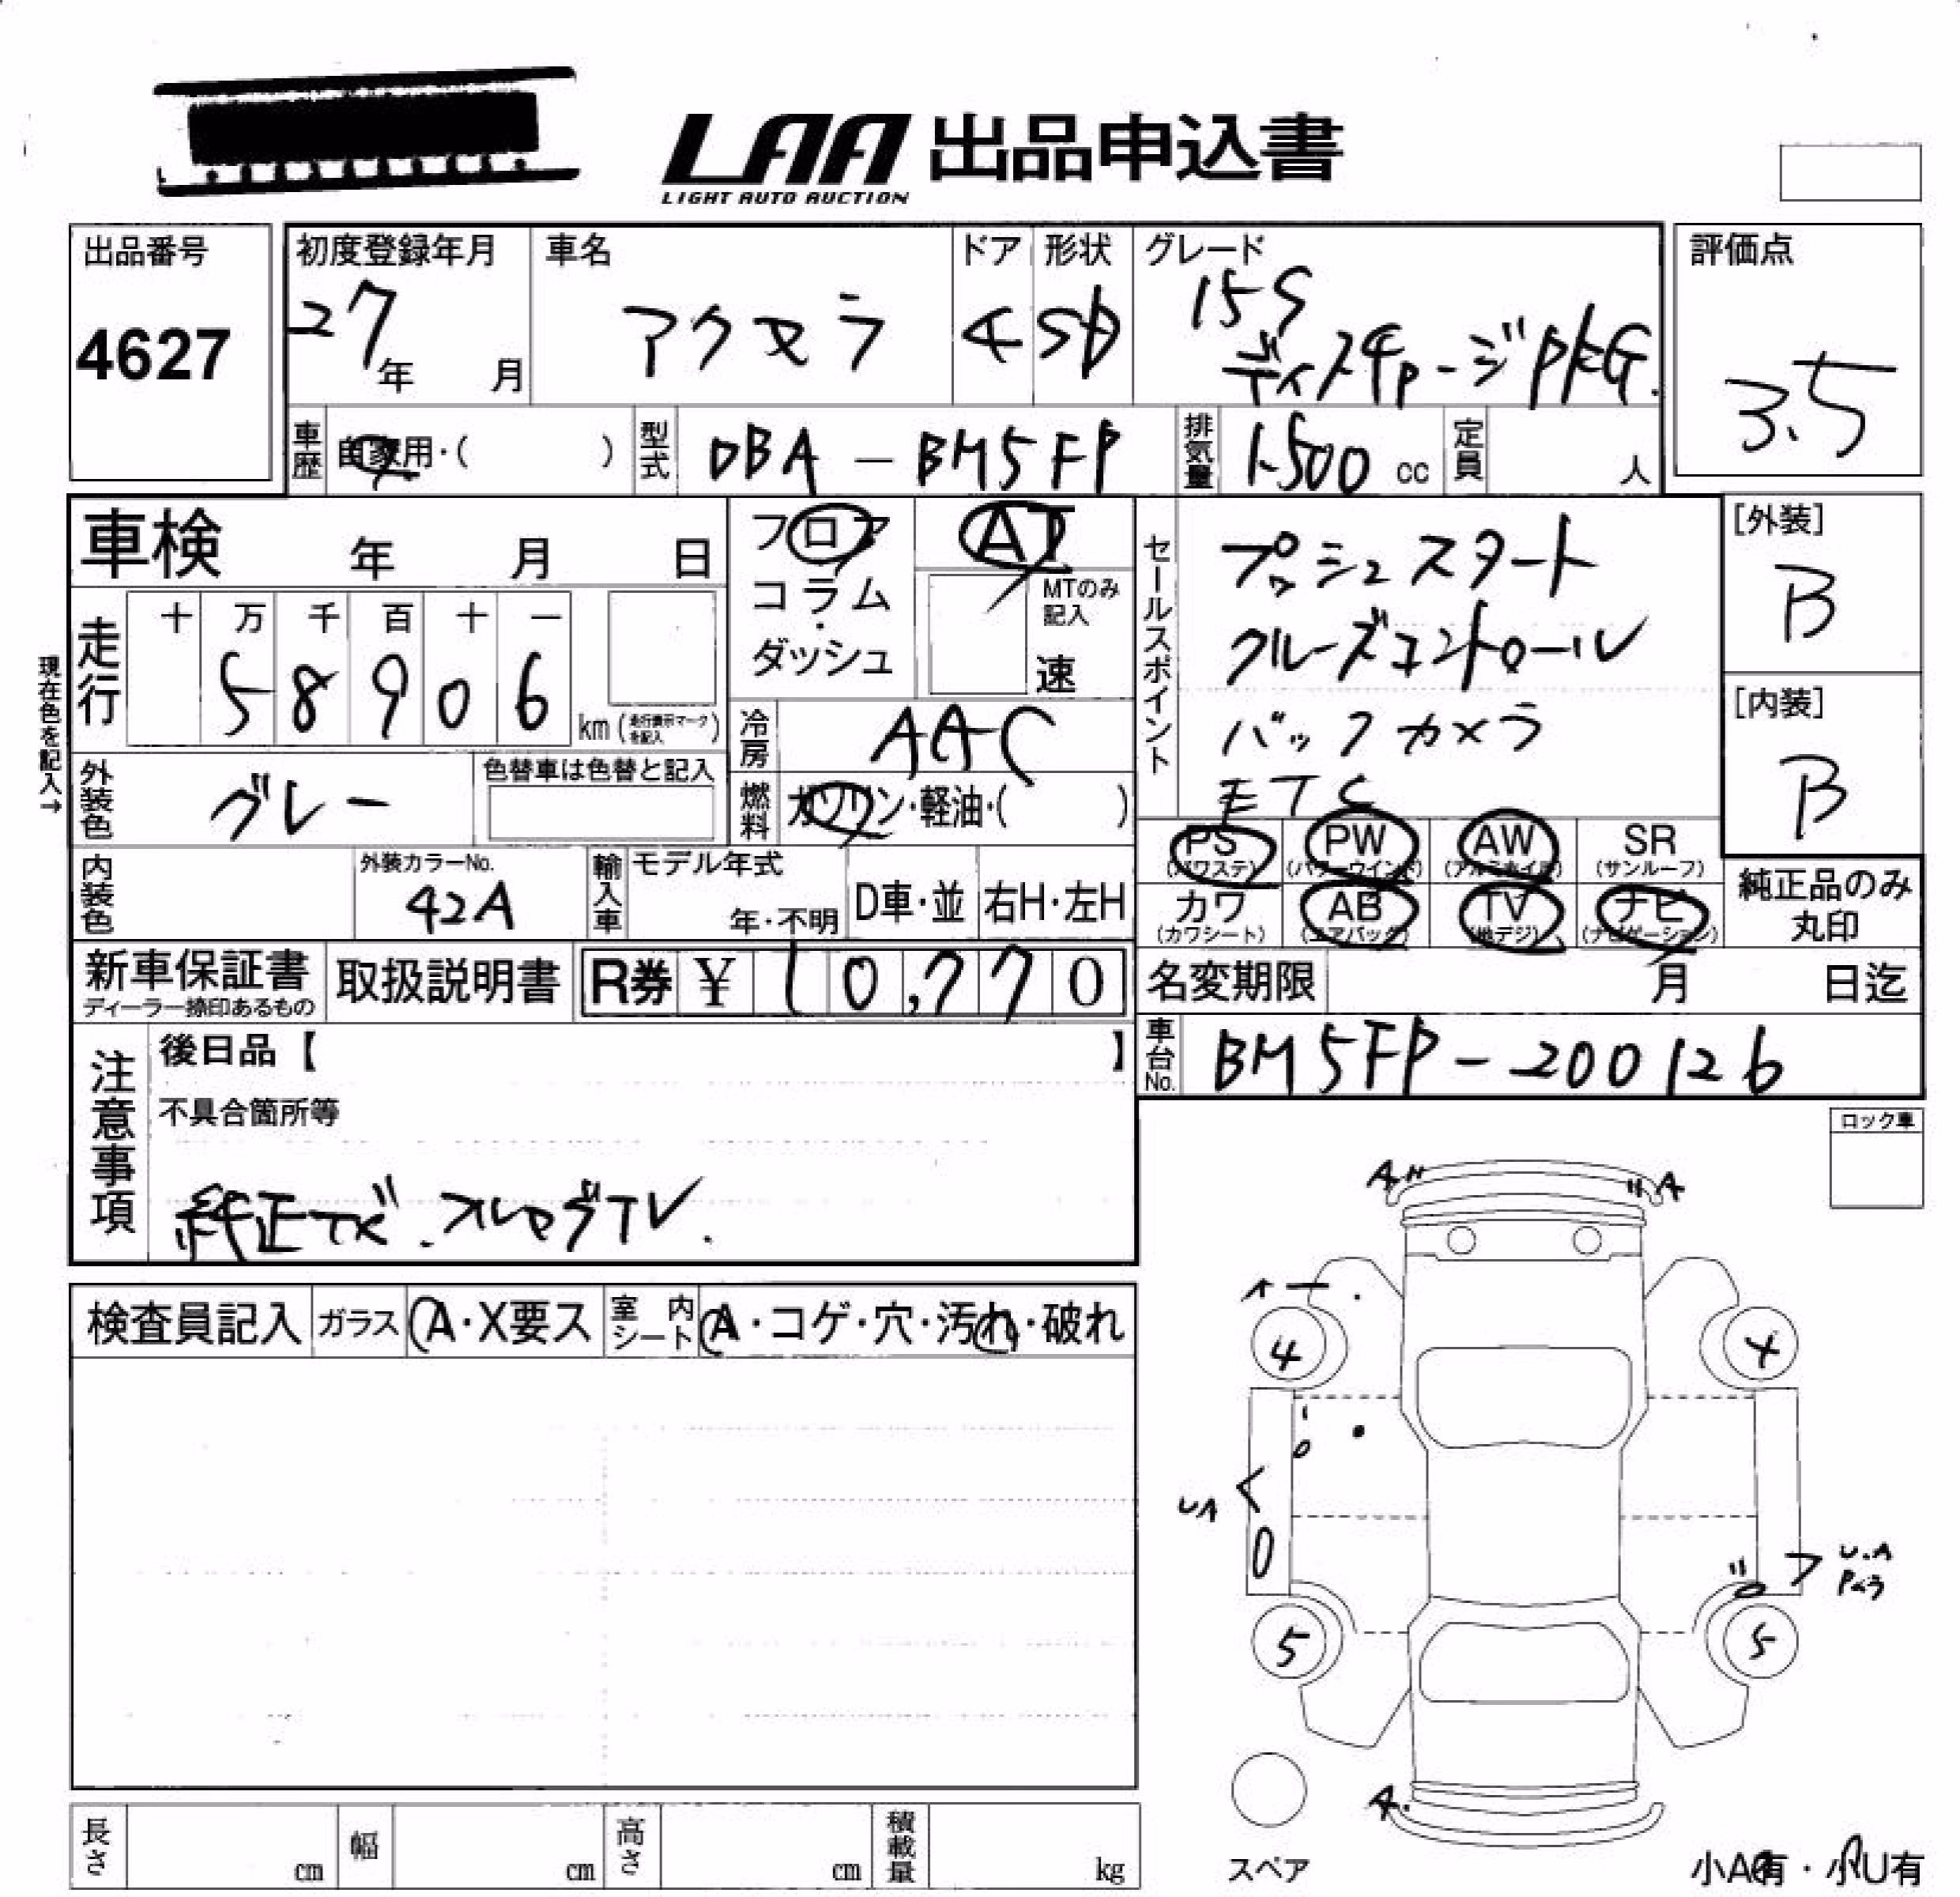 LAA 出品申込書
LIGHT AUTO AUCTION
出品番号
4627
初度登録年月
27年 月
車名
アクセラ
ドア
4
形状
SD
グレード
15S
ディスチャージPKG.
評価点
3.5
車歴
自家用・( )
型式
DBA-BM5FP
排気量
1500 cc
定員
人
車検 年 月 日
フロア
コラム
・
ダッシュ
AT
MTのみ
記入
速
セールスポイント
プッシュスタート
クルーズコントロール
バックカメラ
ETC
[外装]
B
[内装]
B
現在色を記入→
走行
十 万 千 百 十 一
5 8 9 0 6
km (走行表示マークを記入)
冷房
AAC
外装色
グレー
色替車は色替と記入
燃料
ガソリン・軽油・( )
PS (パワステ)
PW (パワーウインド)
AW (アルミホイル)
SR (サンルーフ)
カワ (カワシート)
AB (エアバッグ)
TV (地デジ)
ナビ (ナビゲーション)
純正品のみ
丸印
内装色
外装カラーNo.
42A
輸入車
モデル年式
年・不明
D車・並
右H・左H
新車保証書
ディーラー捺印あるもの
取扱説明書
R券 ¥ 10,770
名変期限 月 日迄
車台No.
BM5FP-200126
注意事項
後日品【 】
不具合箇所等
純正ナビ.フルセグTV.
ロック車
検査員記入
ガラス
A・X要ス
室内シート
A・コゲ・穴・汚れ・破れ
A
A
A
4
4
UA
U.A
5
5
A.
スペア
小A有・小U有
長さ cm
幅 cm
高さ cm
積載量 kg